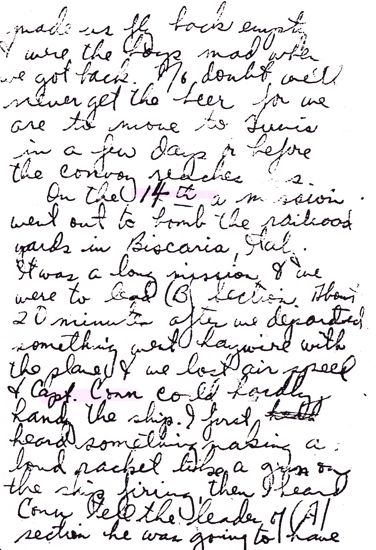 made us fly back empty
& were the boys mad when
we got back. No doubt we'll
never get the beer for we
are to move to Tunis
in a few days or before
the convoy reaches s.
On the 14th a mission
went out to bomb the railroad
yards in Biscaria, Ital.
It was a long mission & we
were to lead (B) Section. About
20 minutes after we departed
something went haywire with
the plane & we lost air speed
& Capt. Conn could hardly
handy the ship. I first
heard something making a
loud racket like a gun on
the ship firing, then I heard
Conn tell the leader of (A)
section he was going to have